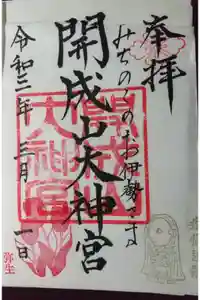 奉拝
みちのくのお伊勢さま
開成山大神宮
開成山大神宮
令和三年三月一日
弥生